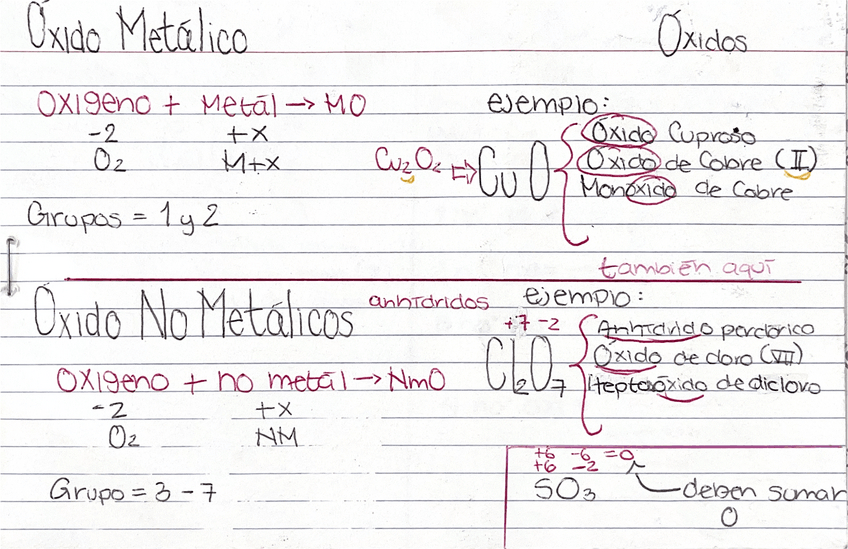 Óxido Metálico
Óxidos
Oxigeno + Metál → MO
-2 +x
O₂ M+x
Grupos = 1 y 2
ejemplo:
Cu₂O₂ ⇒ CuO
Óxido Cuproso
Óxido de Cobre (II)
Monóxido de Cobre
también aquí
Óxido No Metálicos
anhidridos
Oxigeno + no metál → NmO
-2 +x
O₂ NM
Grupo = 3 - 7
ejemplo:
+7 -2
Cl₂O₇
Anhidrido perclórico
Óxido de cloro (VII)
Heptaóxido de dicloro
+6 -6 =0
+6 -2
SO₃
deben sumar
0